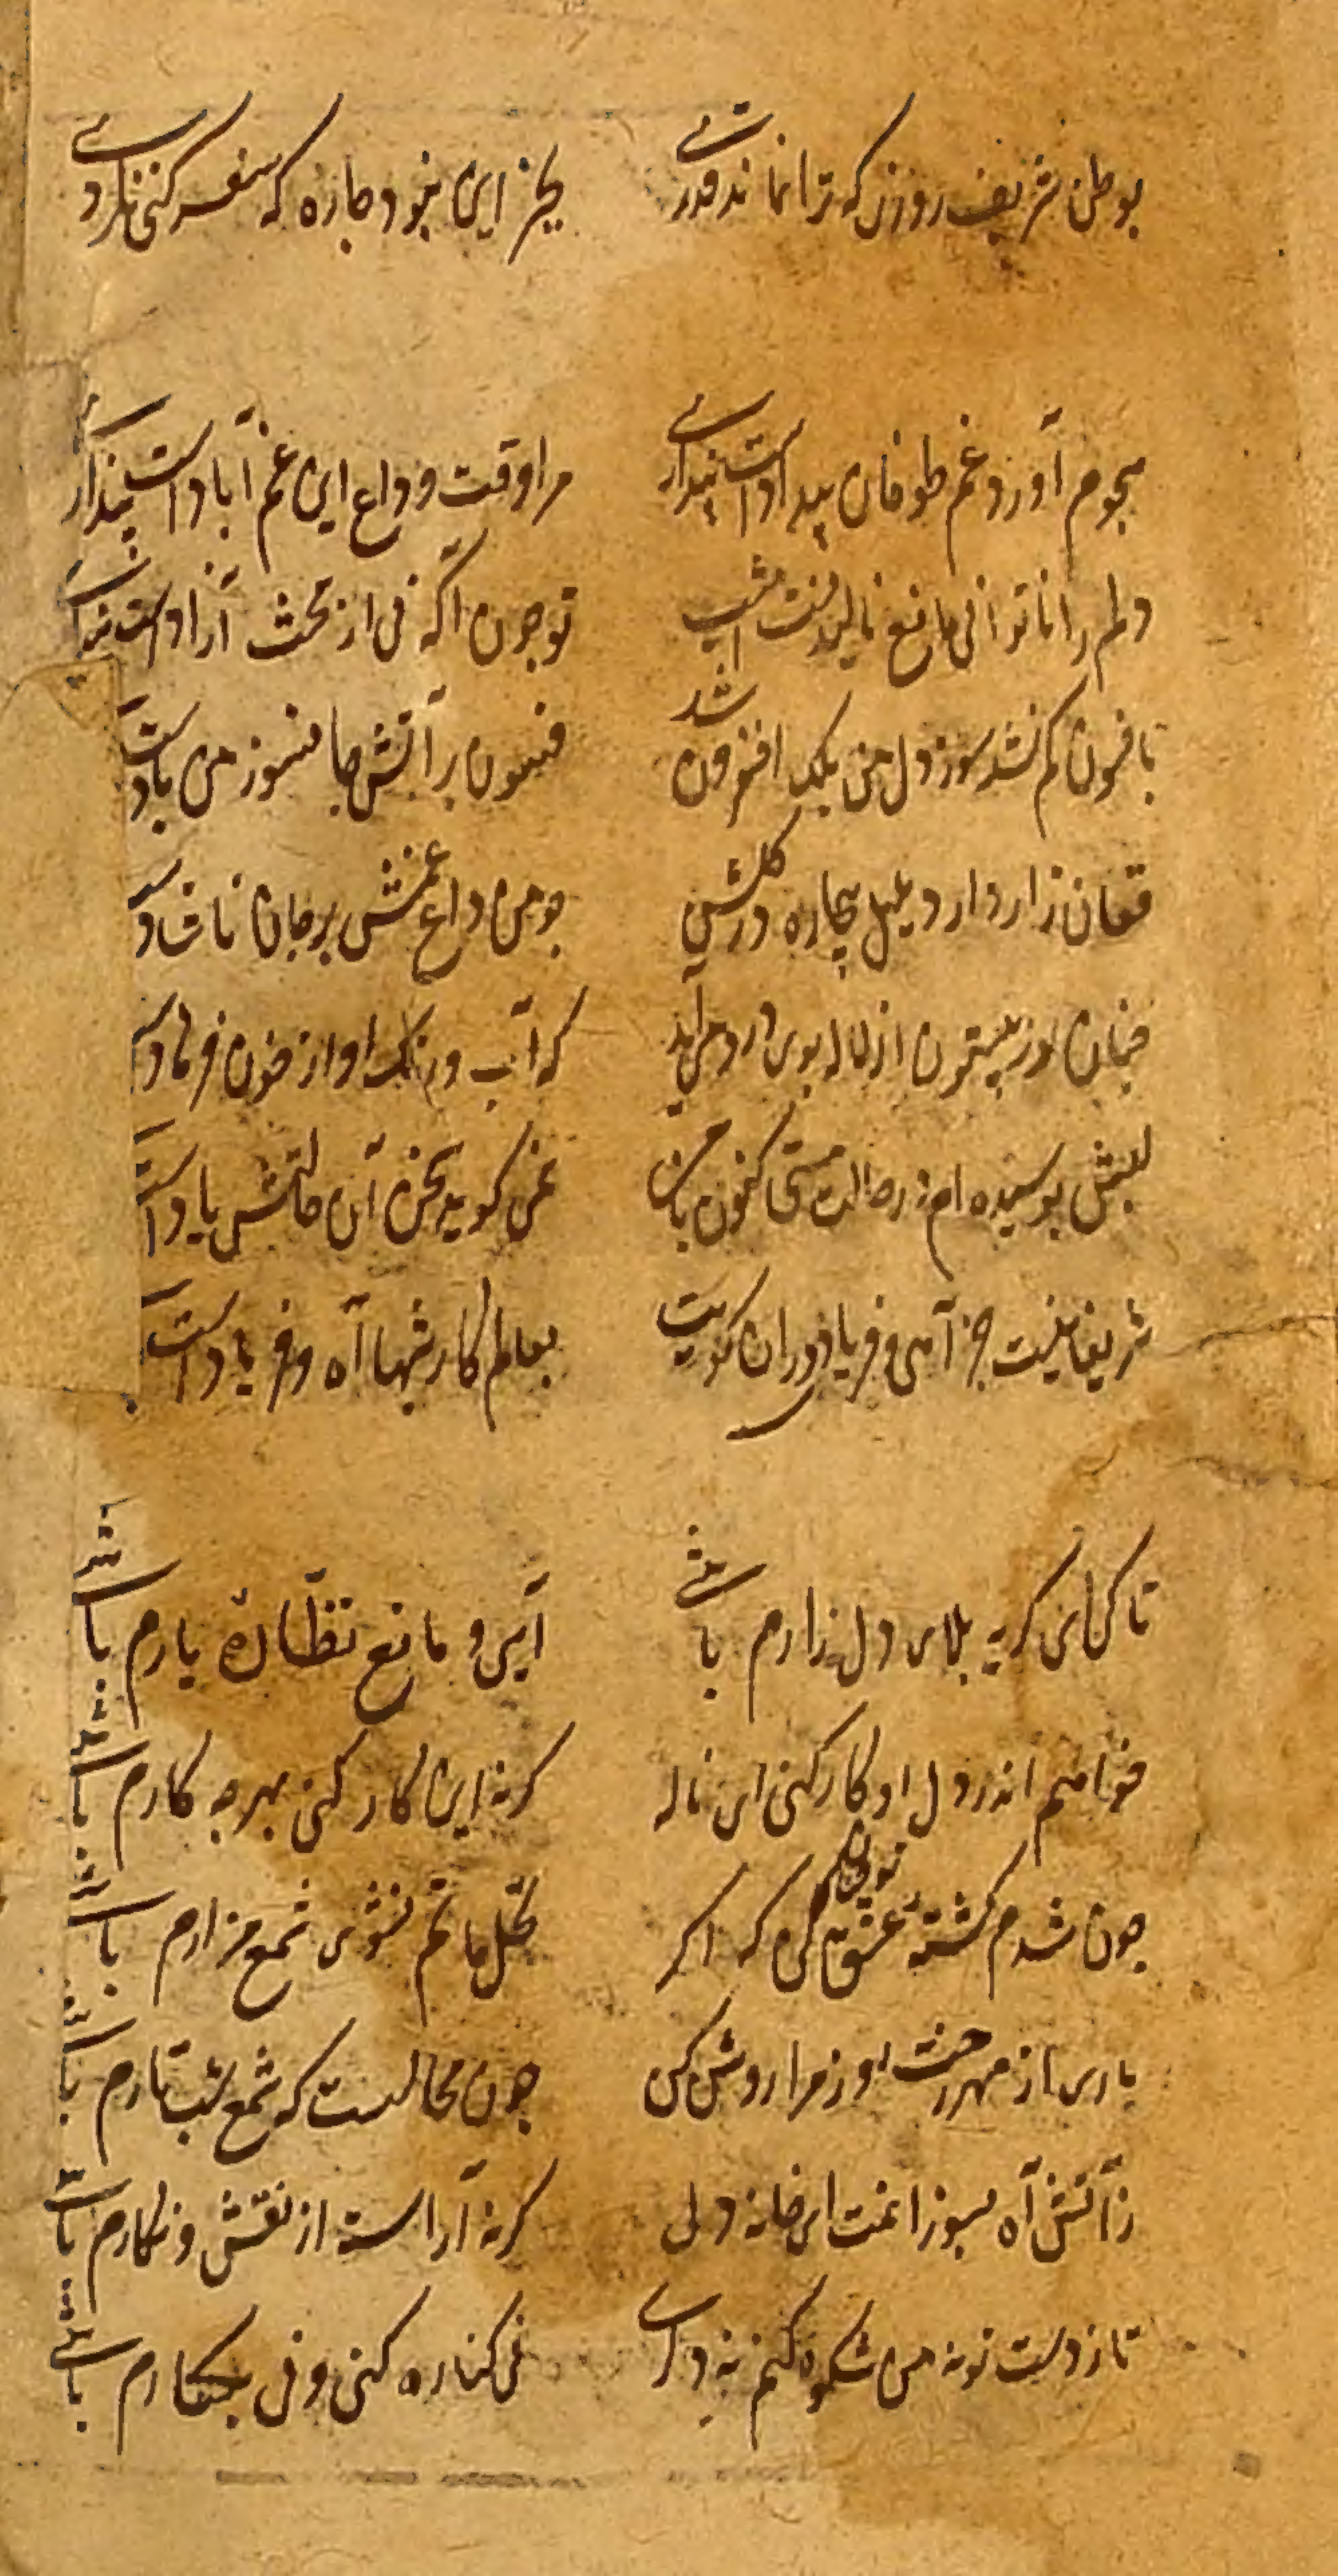 بوطن شریف روزی که ترا نماند قدری بجز این نبود چاره که سفر کنی نکردی
هجوم آورد غم طوفان بیداد است پنداری مرا وقت وداع این غم آباد است پنداری
دلم را ناتوانی مانع نالیدنست امشب تو چون آگه نی از بحث آزاد است
بافسون کم نشد سوز دل من بلکه افزون شد فسون بر آتش جانسوز من باد است
فغان زار دارد بلبل بیچاره در گلشن چو من داغ غمش بر جان ناشاد
چنان در بیستون از لاله بوی درد می آید که آب و رنگ او از خون فرهاد
لبش بوسیده ام در حالت مستی کنون با من نمی گوید سخن آن حالتش یاد است
شریفا نیست جز آهی و فریاد در آن کویت بعالم کار شبها آه و فریاد است
تا کی ای گریه بلای دل زارم باشی آیی و مانع نظّارهٔ یارم باشی
خواهم اندر دل او کار کنی ای ناله گر نه این کار کنی بهر چه کارم باشی
چون شدم کشتهٔ عشق تو که اگر نخل ماتم نشوی شمع مزارم باشی
باری از مهر رخت روز مرا روشن کن چون محالست که شمع شب تارم باشی
ز آتش آه بسوزانمت ای خانه دل گر نه آراسته از نقش و نگارم باشی
تا ز دست تو نه من شکوه کنم نه دگری نی کناره کنی و نی بکنارم باشی